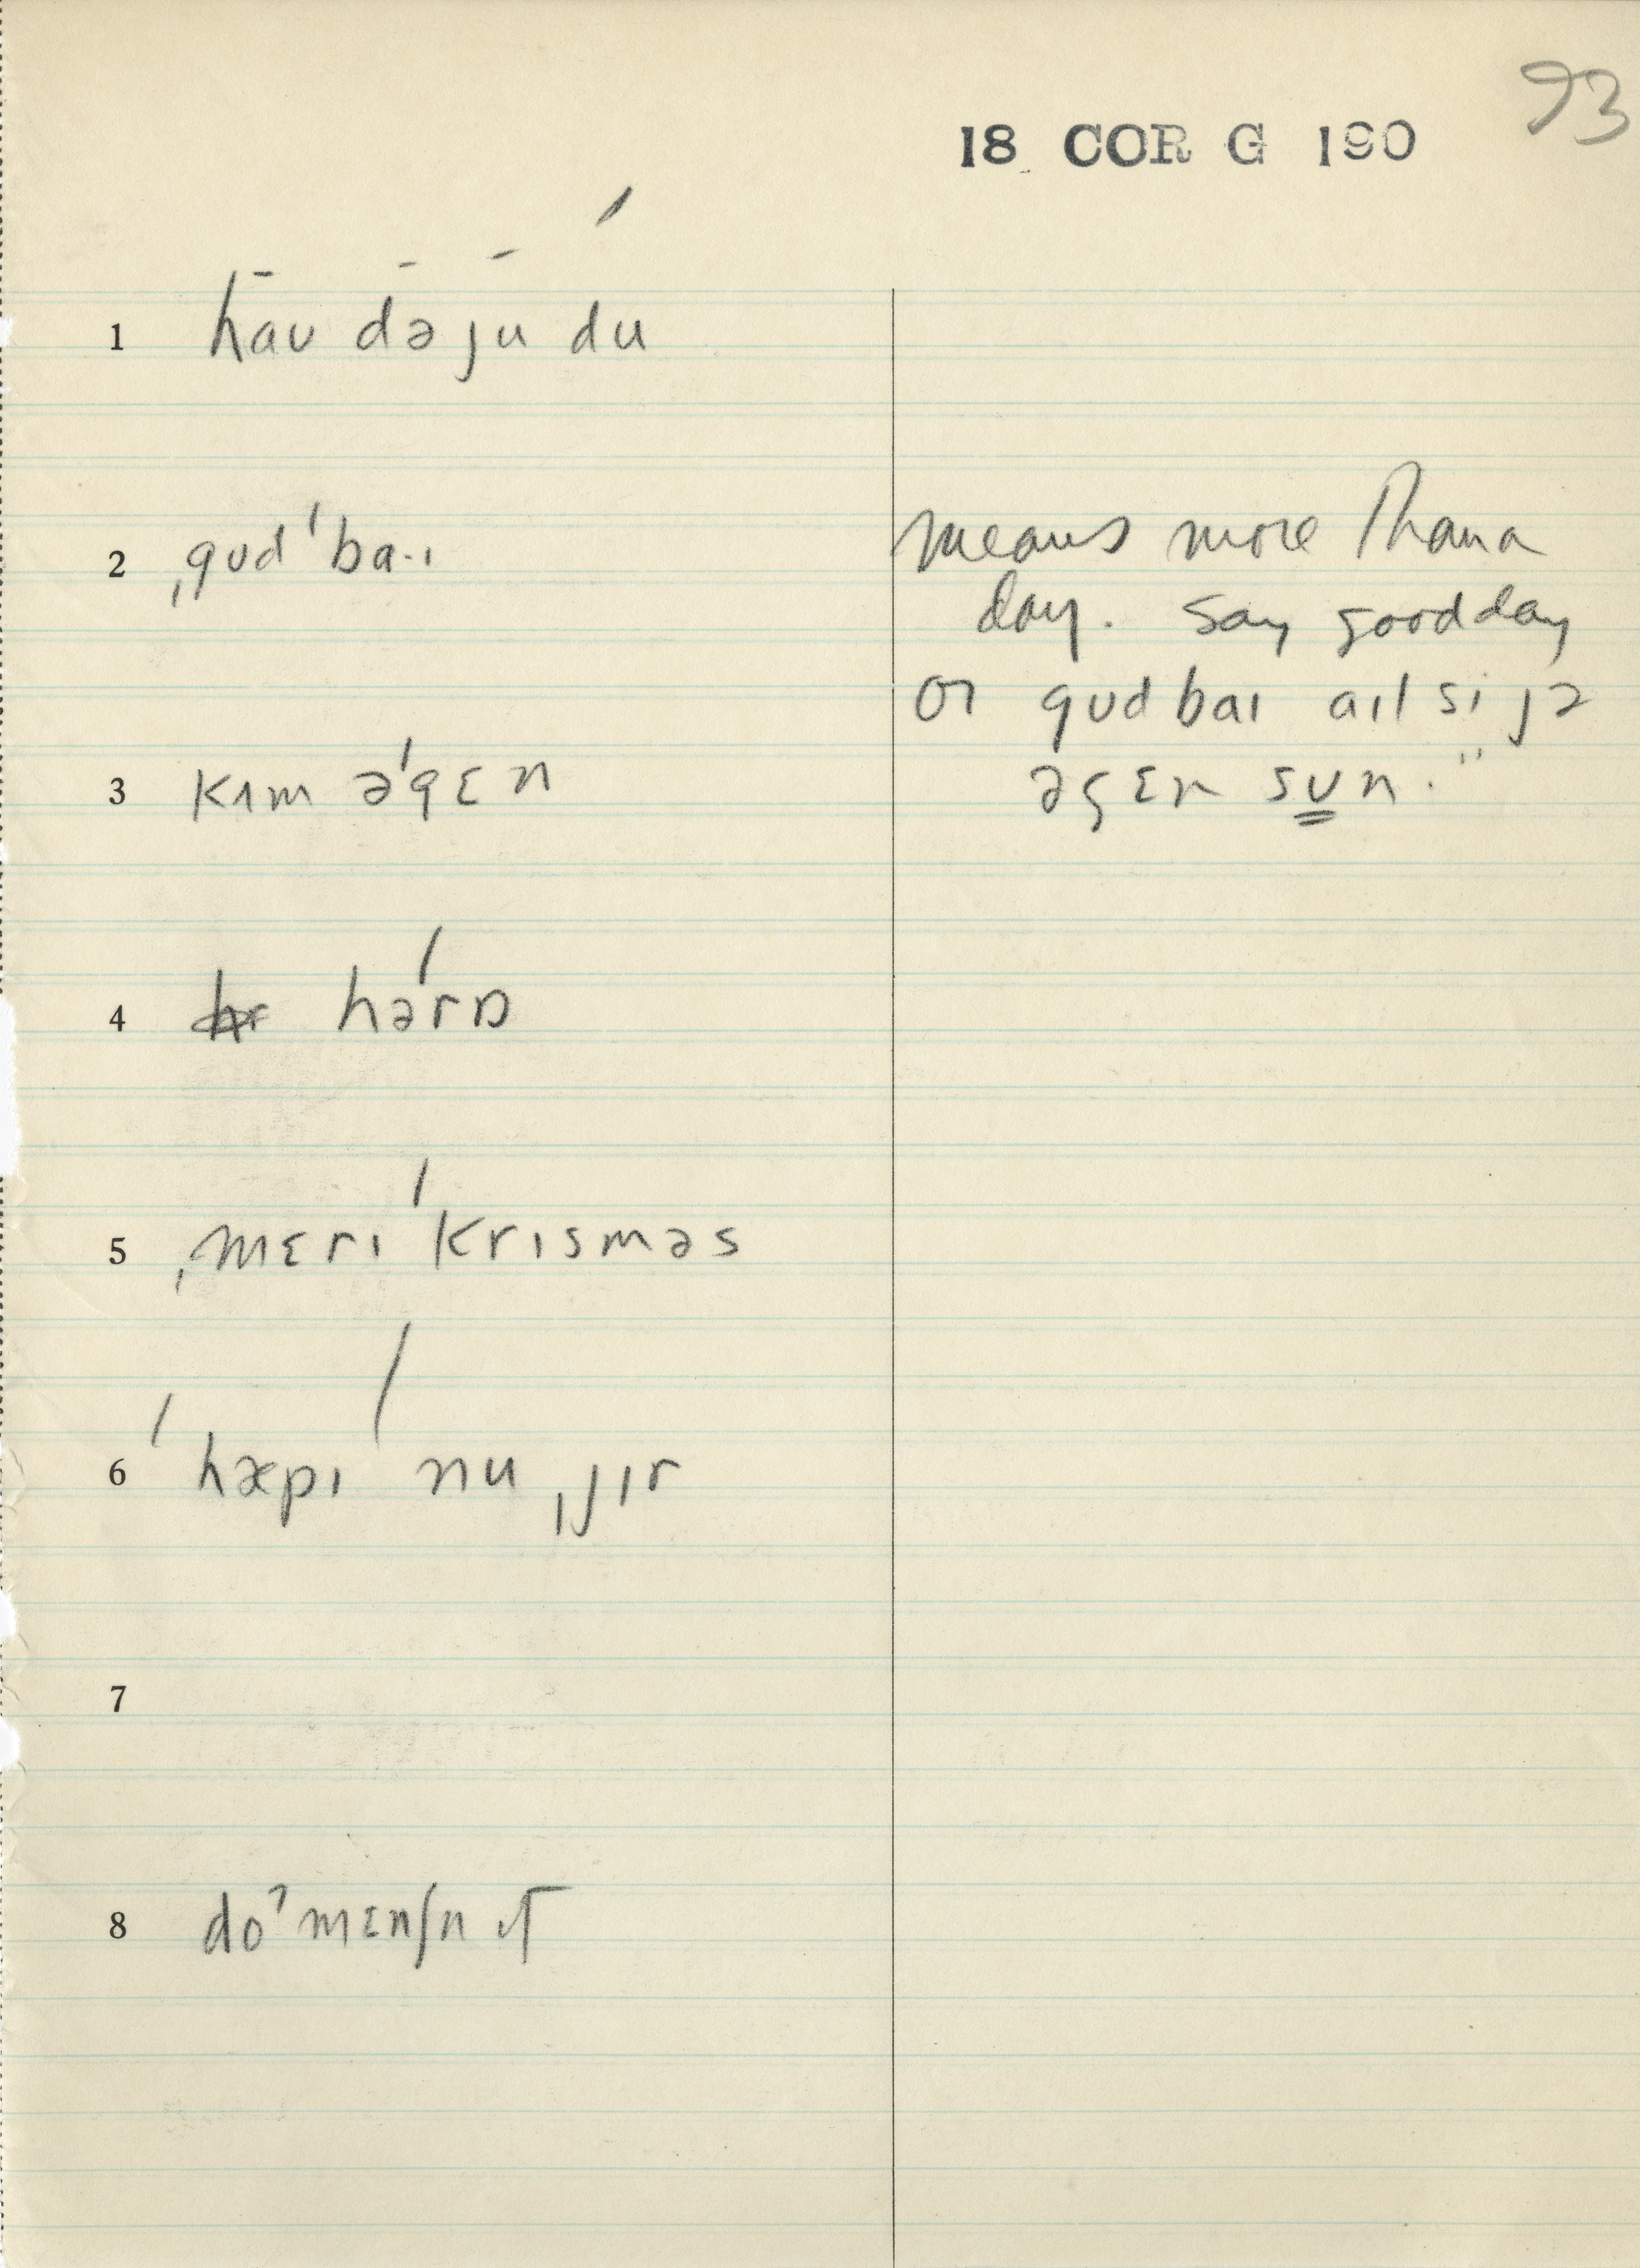 93
18 COR G 190
1 haʊ də ju du
2 ˌgʊd ˈba·ɪ
means more than a
day. Say good day
or gʊd baɪ aɪl si jə
əgɛn sʊn."
3 kɪm əˈgɛn
4 hərɒ
5 ˌmɛrɪ ˈkrɪsməs
6 ˈhæpɪ ˈnu ˌjɪr
7
8 doˀmɛnʃn ɪt